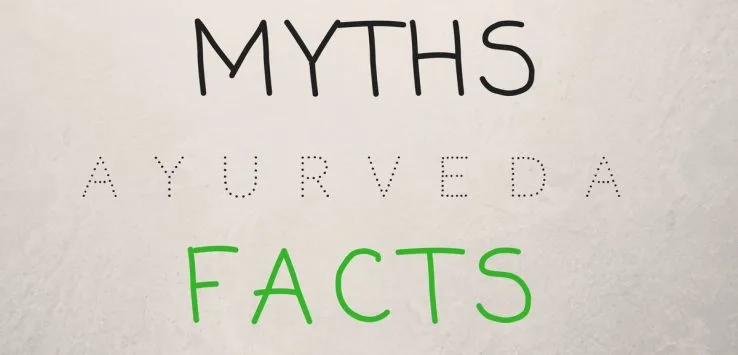 MYTHS
AYURVEDA
FACTS